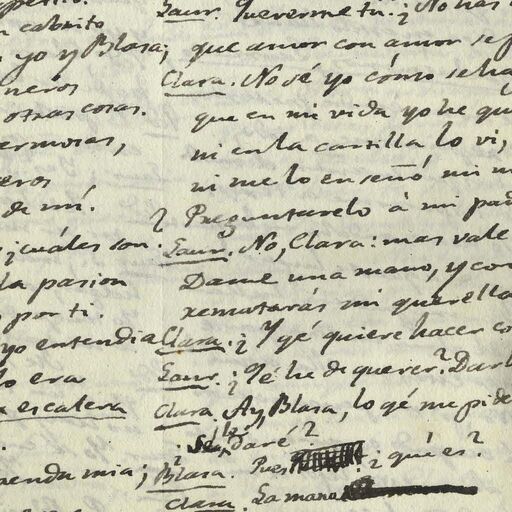 cabrito
yo y Blasa;
neros
otras cosas.
ermosas,
eros
de mí.
¿cuáles son.
la pasion
por ti.
yo entendia
lo era
escalera
enda mia;
Laur. Quererme tu: ¿No has
que amor con amor se p
Clara. No sé yo cómo se ha
que en mi vida yo he
ni en la cartilla lo vi,
ni me lo enseñó mi m
¿Preguntarelo á mi pad
Laur. No, Clara: mas vale
Dame una mano, y con
rematarás mi querella
Clara. ¿Y qé quiere hacer co
Laur. ¿Qé he de querer? Dar
Clara. Ay, Blasa, lo qé me pide
Daré?
Blasa. Pues ¿qué es?
Clara. La mano